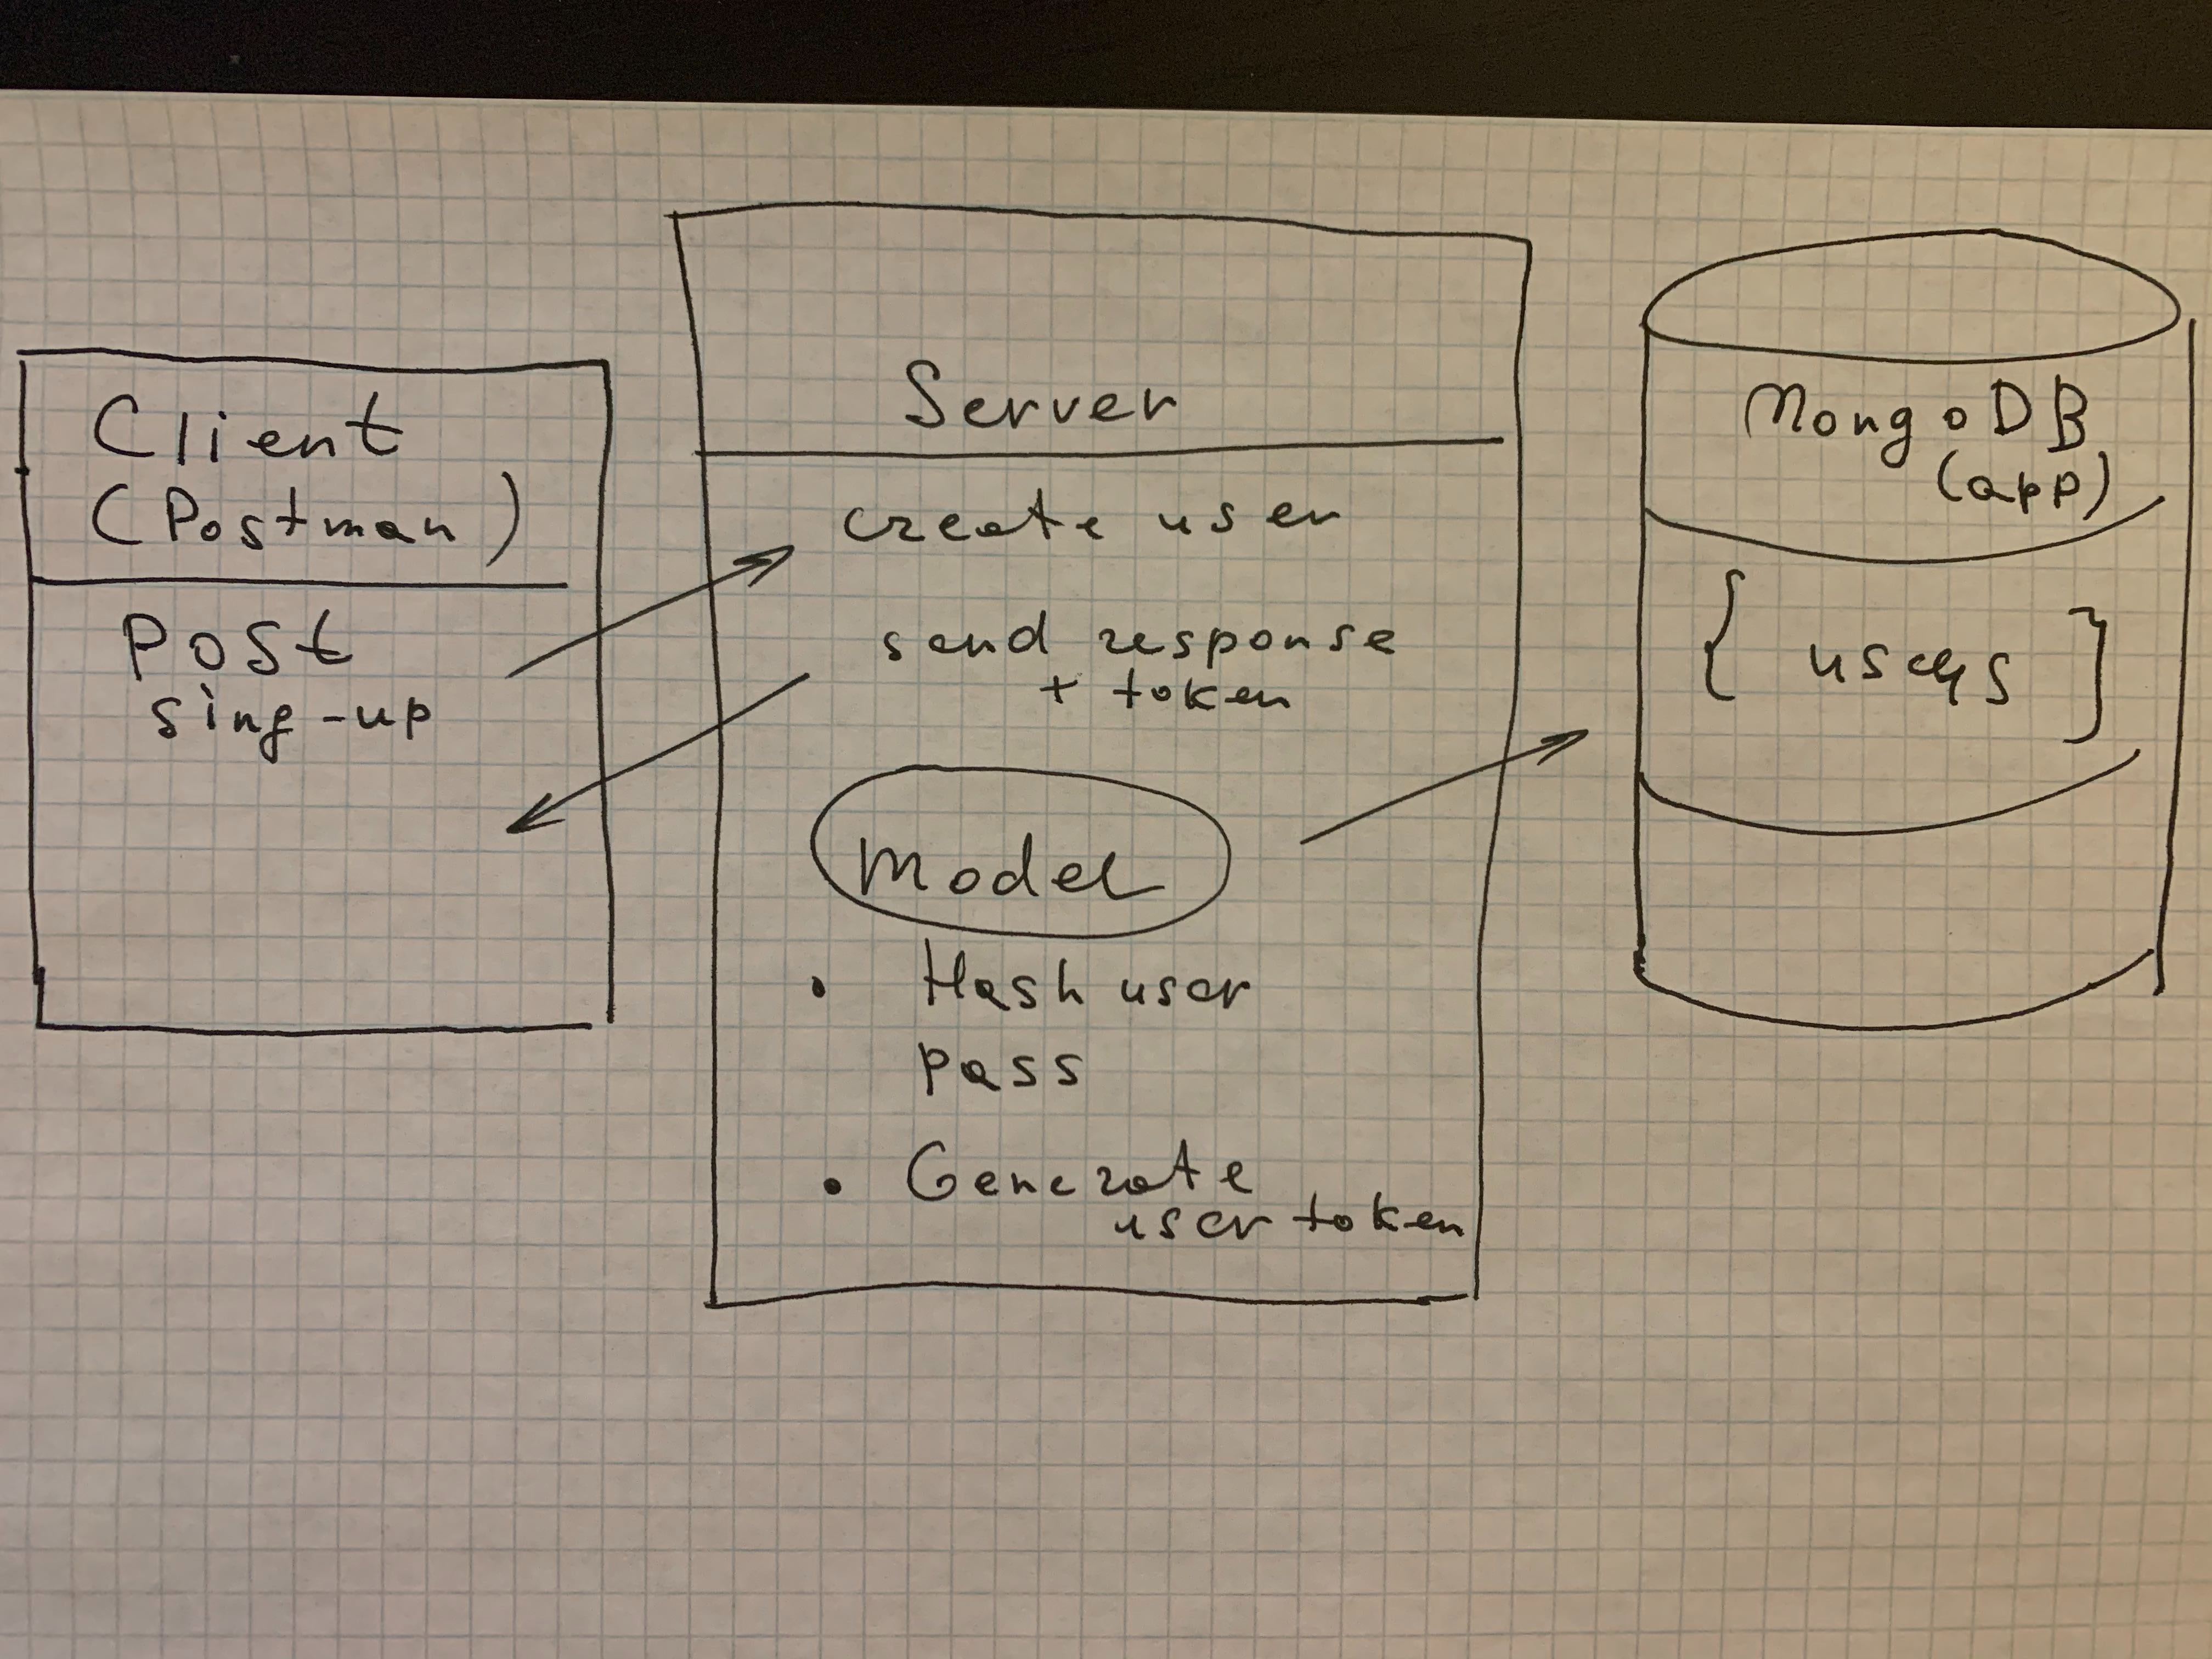 Client
(Postman)
Post
sing-up
Server
create user
send response
+ token
Model
• Hash user
pass
• Generate
user token
MongoDB
(app)
{ users }